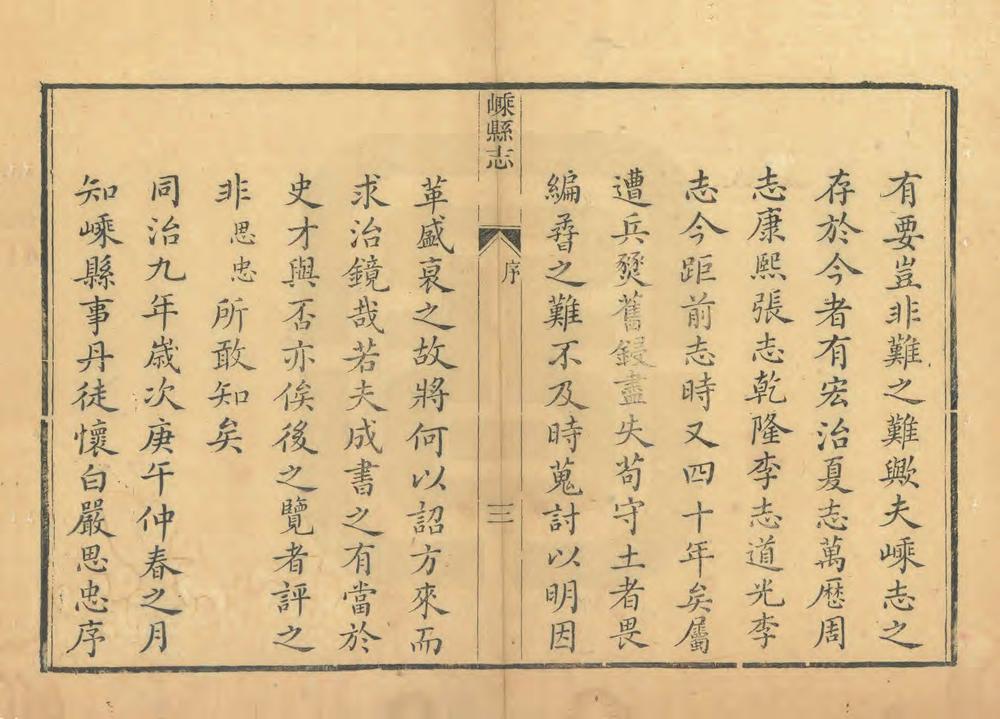 有要豈非難之難歟夫嵊志之
存於今者有宏治夏志萬歷周
志康熙張志乾隆李志道光李
志今距前志時又四十年矣屬
遭兵燹舊鋟盡失苟守土者畏
編暋之難不及時蒐討以明因
嵊縣志
序
三
革盛衰之故將何以詔方來而
求治鏡哉若夫成書之有當於
史才與否亦俟後之覽者評之
非思忠所敢知矣
同治九年歲次庚午仲春之月
知嵊縣事丹徒懷白嚴思忠序